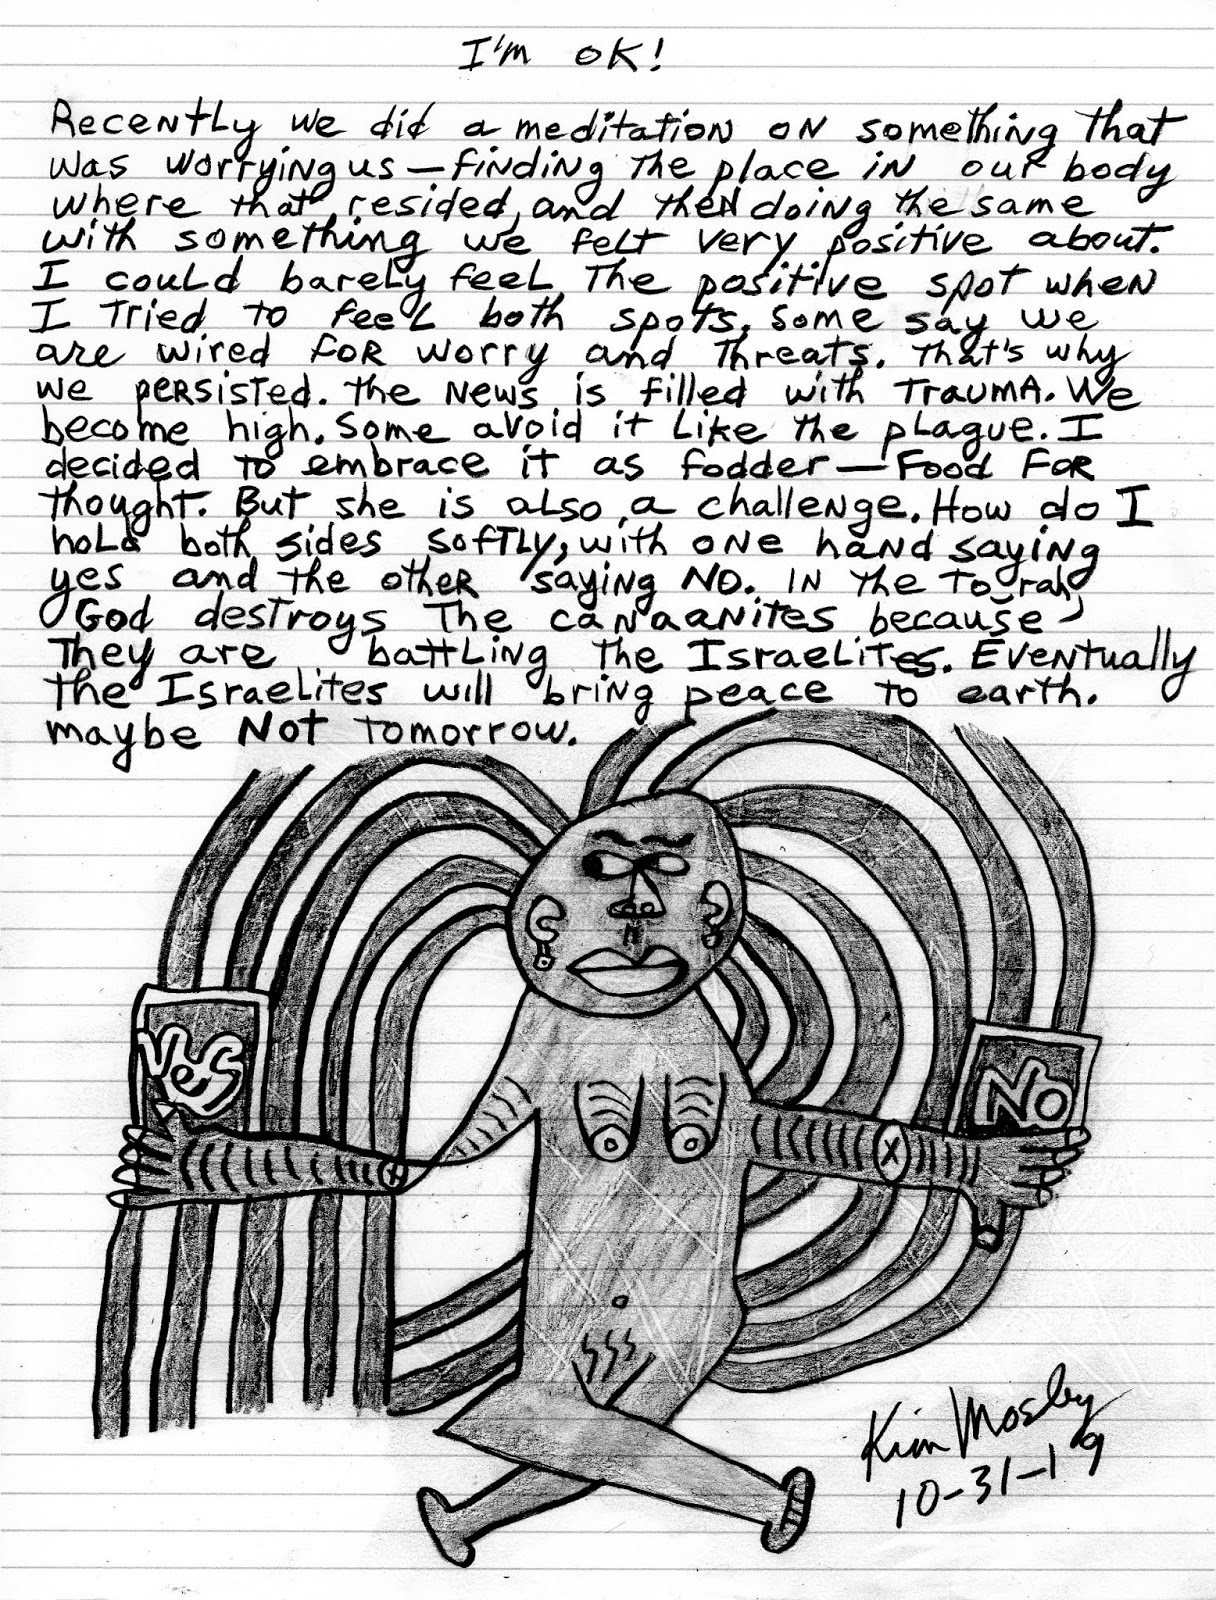 I'm OK!
Recently we did a meditation on something that
was worrying us — finding the place in our body
where that resided, and then doing the same
with something we felt very positive about.
I could barely feel the positive spot when
I tried to feel both spots. Some say we
are wired for worry and threats. That's why
we persisted. The news is filled with trauma. We
become high. Some avoid it like the plague. I
decided to embrace it as fodder — food for
thought. But she is also a challenge. How do I
hold both sides softly, with one hand saying
yes and the other saying NO. In the Torah,
God destroys the Canaanites because
they are battling the Israelites. Eventually
the Israelites will bring peace to earth.
maybe NOT tomorrow.
Yes
No
Kim Mosley
10-31-19